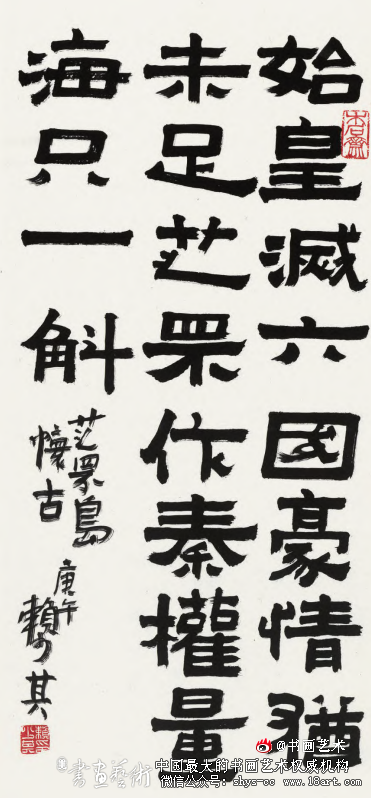 始皇滅六國豪情猶
未足芝罘作秦權量
海只一斛
芝罘島
懷古
庚午
賴少其
@书画艺术
書画藝術
中国最大的书画艺术权威机构
微信公众号：shys-cc www.18art.com